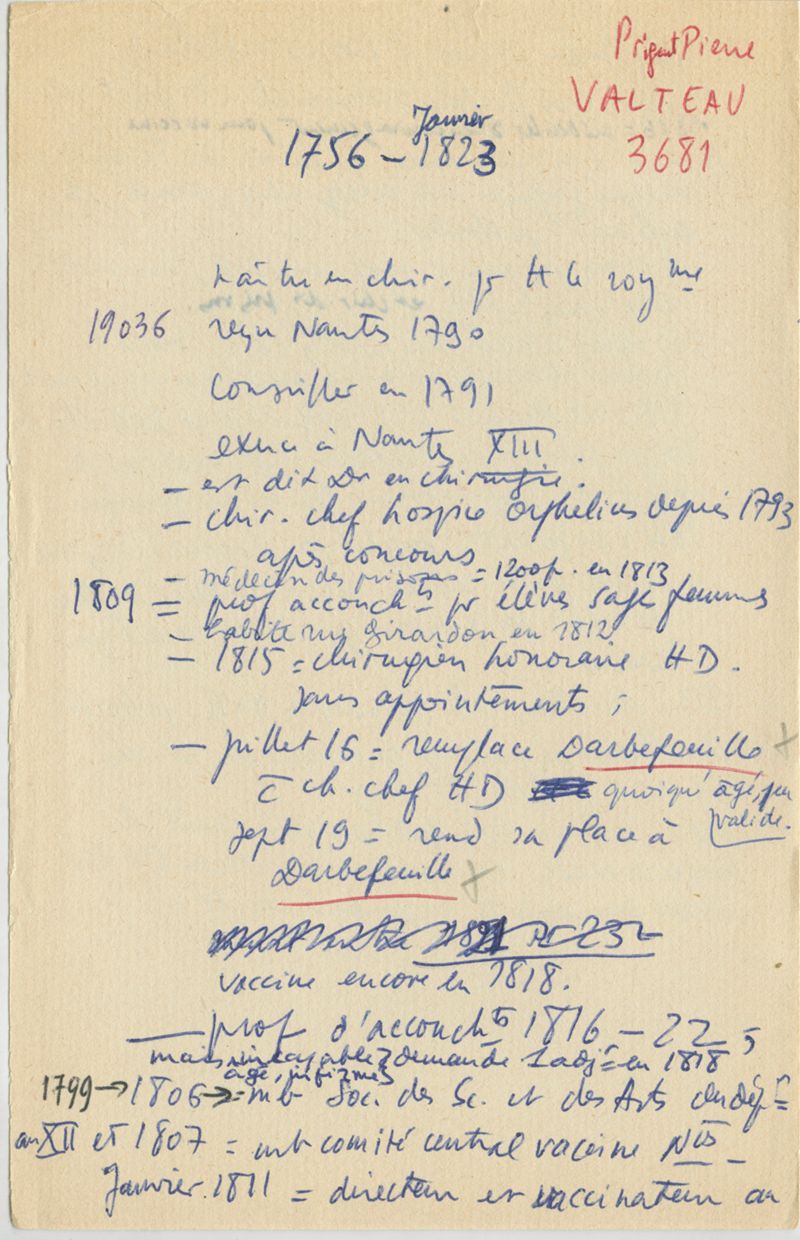 Prigent Pierre
VALTEAU
3681
Janvier
1756 – 1823
Maître en chir. pr H le roy me
19036 reçu Nantes 1790
Conseiller en 1791
exerce à Nantes XIII
– est dit Dr en chirurgie.
– chir. chef hospice Orphelins depuis 1793
après concours
– médecin des prisons = 1200 f. en 1813
1809 = prof accoucht̲s pr élèves sage femmes
– habite rue Girardon en 1812
– 1815 = chirurgien honoraire HD.
sans appointements ;
– juillet 16 = remplace Darbefeuille +
c̄ ch. chef HD quoiqu'âgé, peu
valide.
sept 19 = rend sa place à
Darbefeuille +
1821
vaccine encore en 1818.
— prof d'accoucht̲s 1816 – 22 ;
mais incapable, demande 1 adjt en 1818
âgé, infirmes
1799 → 1806 → = mb Soc. des Sc. et des Arts du dépt =
an XII et 1807 = mb comité central vaccine Nts –
Janvier 1811 = directeur et vaccinateur au